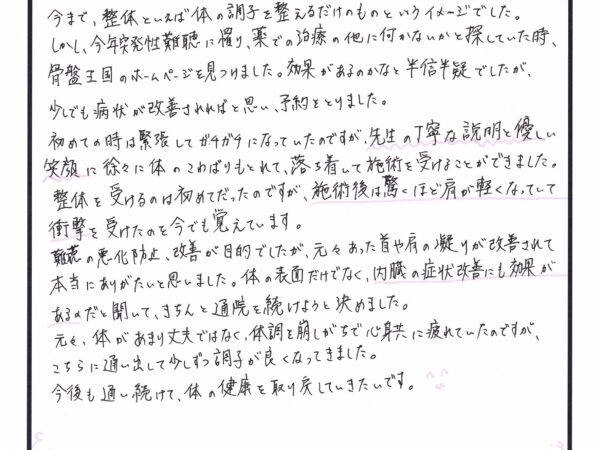 今まで、整体といえば体の調子を整えるだけのものというイメージでした。
しかし、今年突発性難聴に罹り、薬での治療の他に何かないかと探していた時、
骨盤王国のホームページを見つけました。効果があるのかなと半信半疑でしたが、
少しでも病状が改善されればと思い、予約をとりました。
初めての時は緊張してガチガチになっていたのですが、先生の丁寧な説明と優しい
笑顔に徐々に体のこわばりもとれて、落ち着いて施術を受けることができました。
整体を受けるのは初めてだったのですが、施術後は驚くほど肩が軽くなっていて
衝撃を受けたのを今でも覚えています。
難聴の悪化防止、改善が目的でしたが、元々あった首や肩の凝りが改善されて
本当にありがたいと思いました。体の表面だけでなく、内臓の症状改善にも効果が
あるのだと聞いて、きちんと通院を続けようと決めました。
元々、体があまり丈夫ではなく、体調を崩しがちで心身共に疲れていたのですが、
こちらに通い出して少しずつ調子が良くなってきました。
今後も通い続けて、体の健康を取り戻していきたいです。